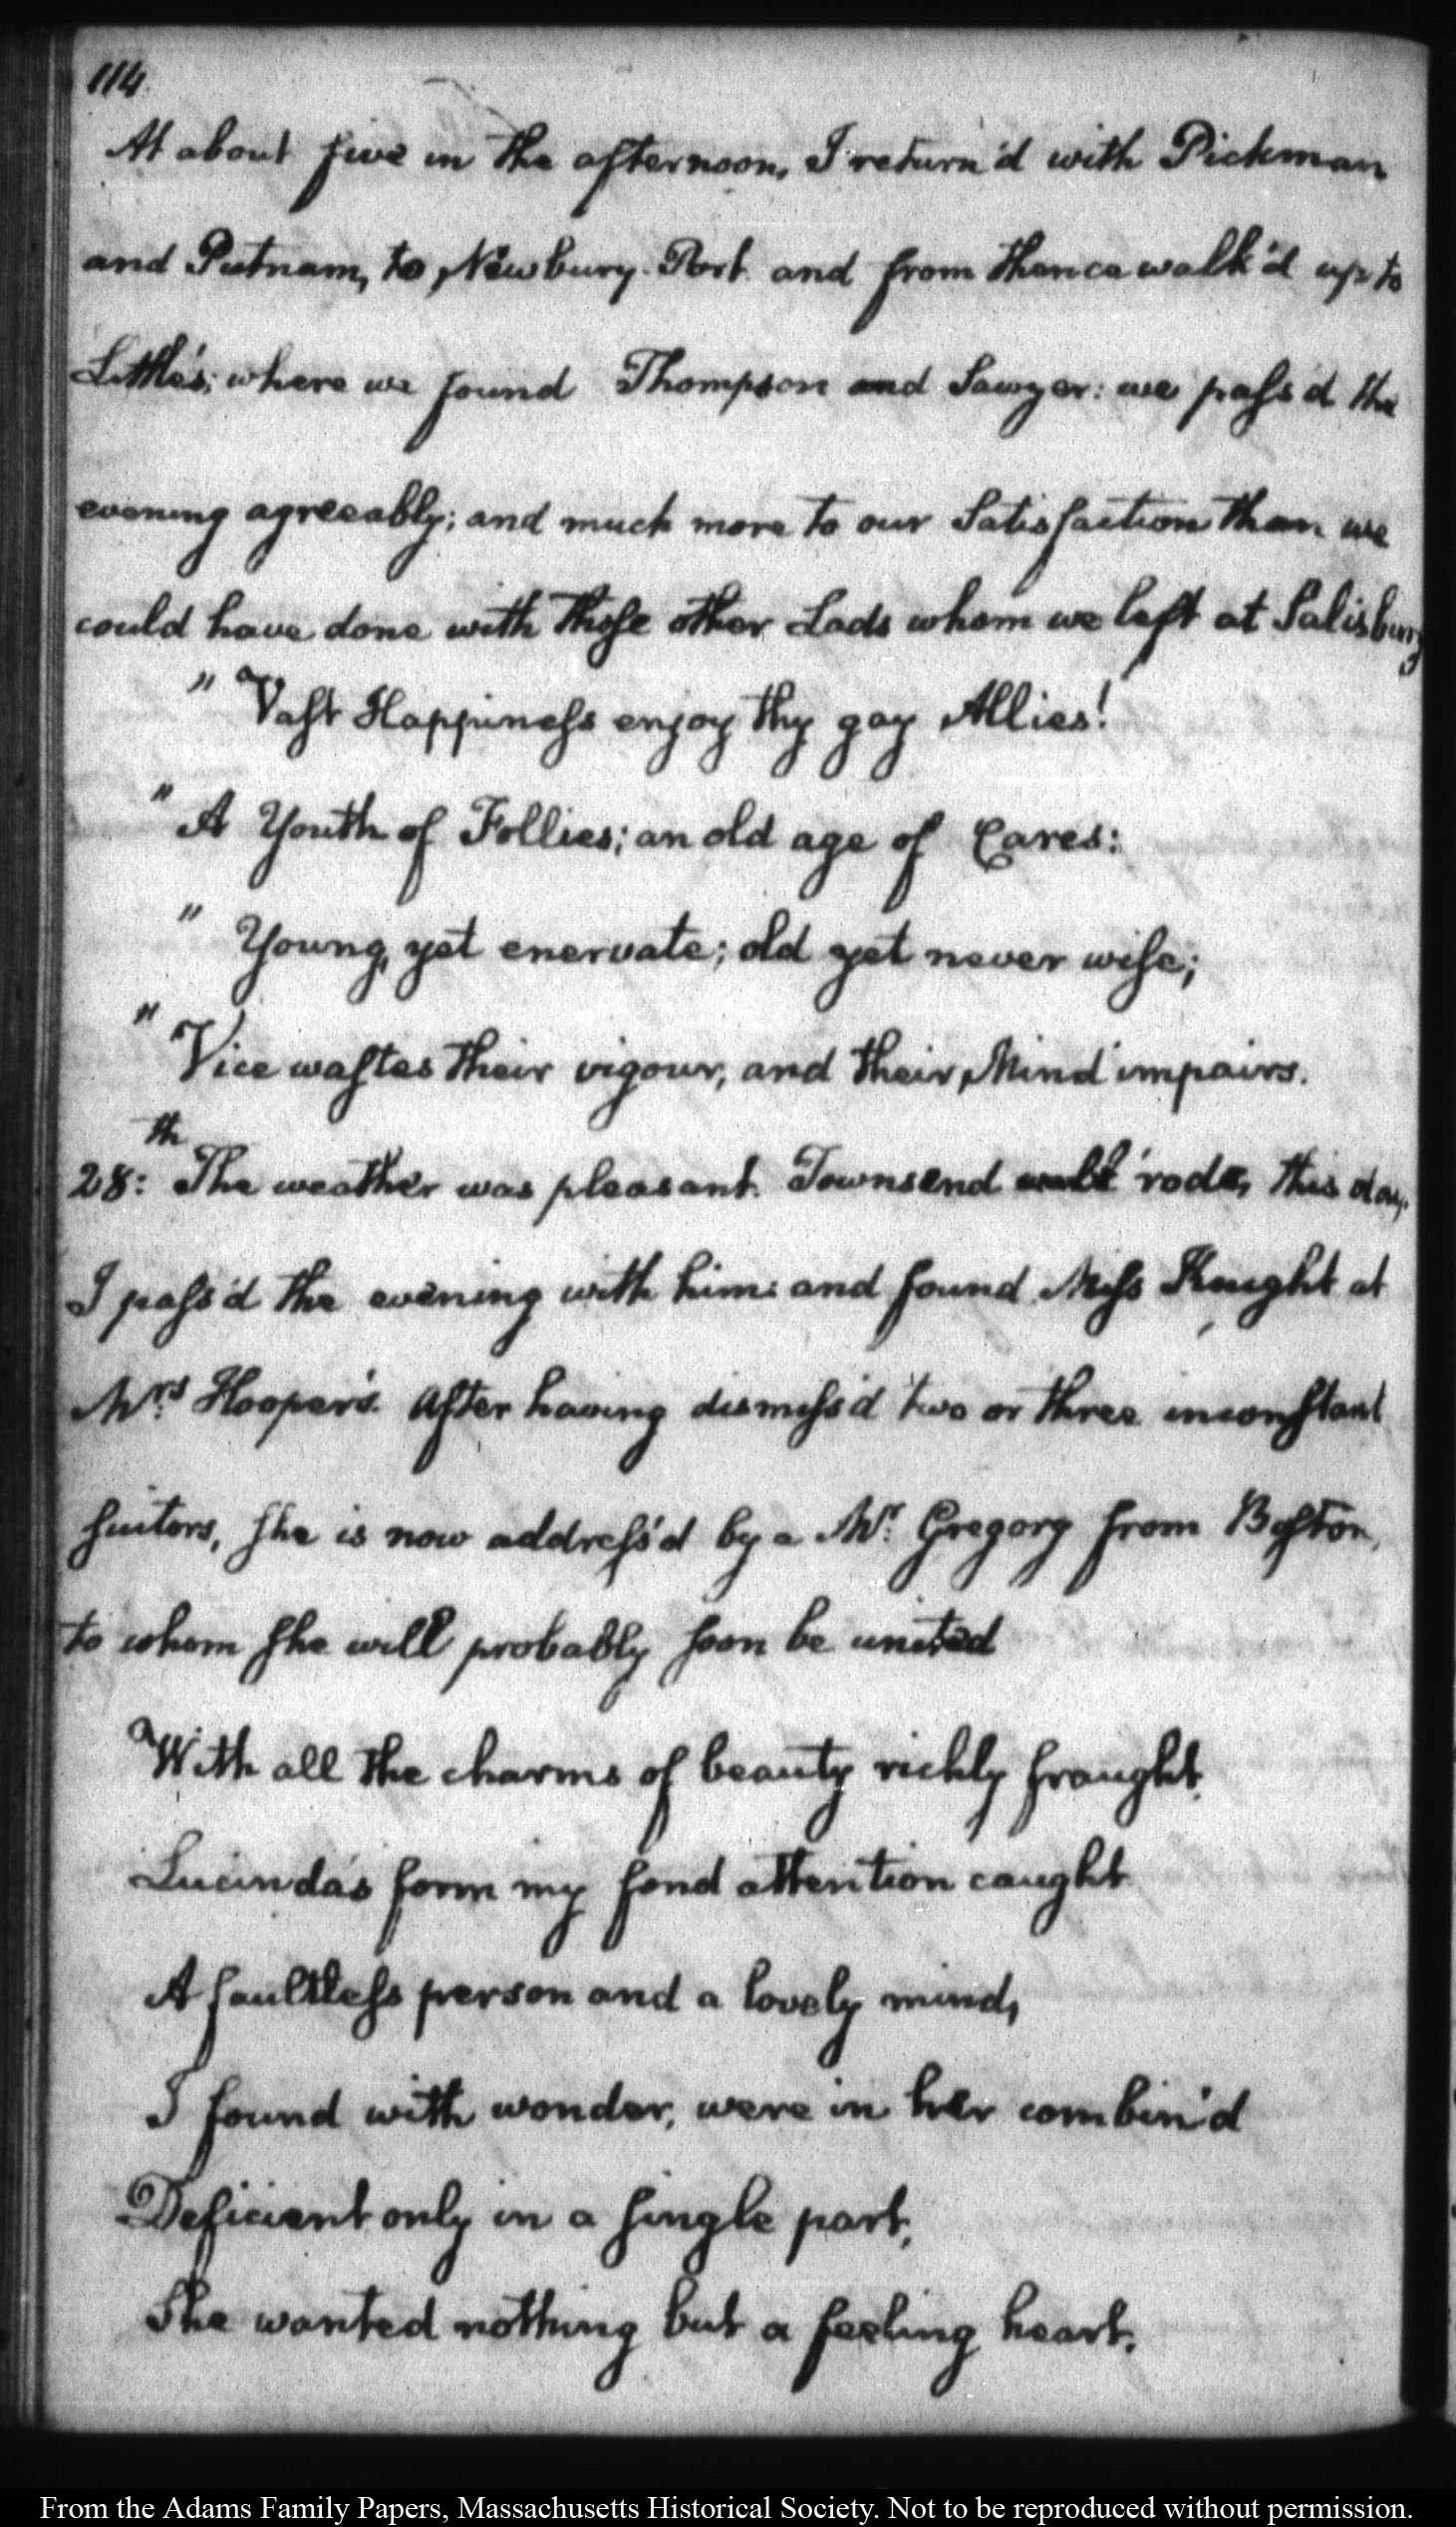 114.
At about five in the afternoon, I return'd with Pickman
and Putnam, to Newbury-Port. and from thence walk'd up to
Little's; where we found Thompson and Sawyer: we pass'd the
evening agreeably; and much more to our Satisfaction than we
could have done with those other Lads whom we left at Salisbury
" Vast Happiness enjoy thy gay Allies!
" A Youth of Follies; an old age of Cares:
" Young, yet enervate; old yet never wise;
" Vice wastes their vigour, and their Mind impairs.
28:th The weather was pleasant. Townsend rode, this day.
I pass'd the evening with him: and found Miss Knight at
Mrs. Hooper's. After having dismiss'd two or three inconstant
suitors, she is now address'd by a Mr. Gregory from Boston,
to whom she will probably soon be united
With all the charms of beauty richly fraught,
Lucinda's form my fond attention caught
A faultless person and a lovely mind,
I found with wonder, were in her combin'd
Deficient only in a single part,
She wanted nothing but a feeling heart.
From the Adams Family Papers, Massachusetts Historical Society. Not to be reproduced without permission.